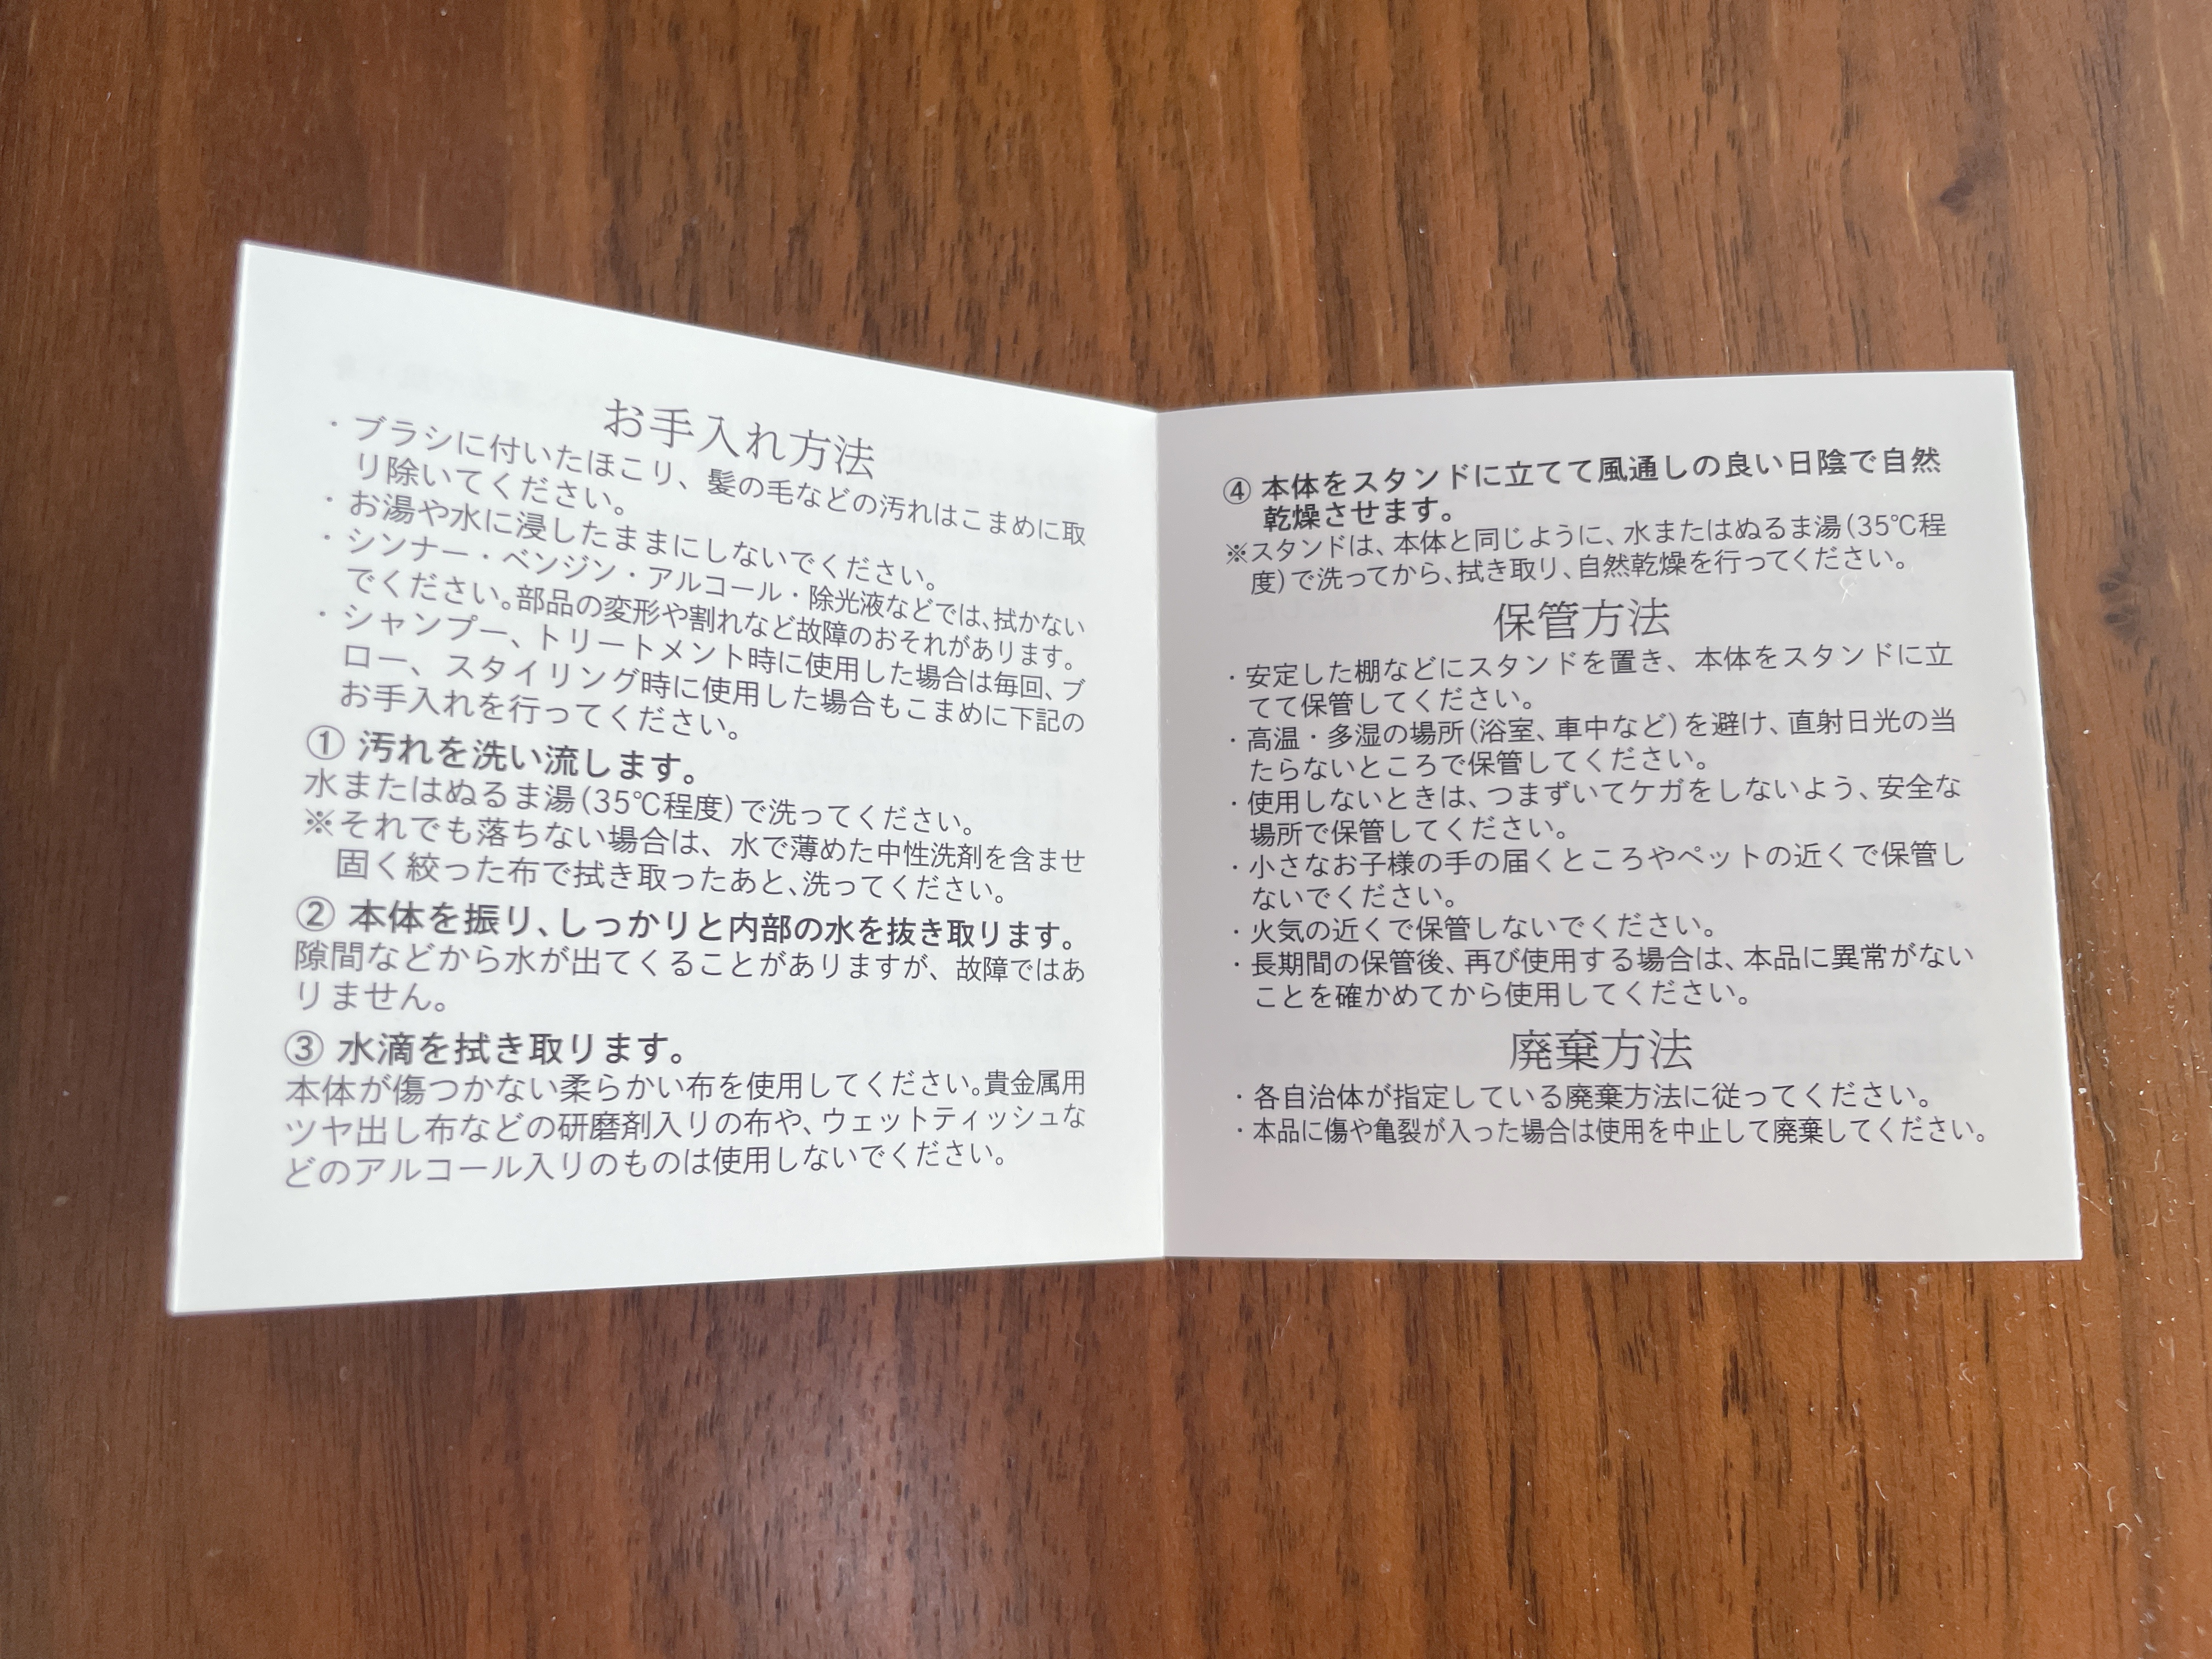 お手入れ方法
・ブラシに付いたほこり、髪の毛などの汚れはこまめに取
り除いてください。
・お湯や水に浸したままにしないでください。
・シンナー・ベンジン・アルコール・除光液などでは、拭かない
でください。部品の変形や割れなど故障のおそれがあります。
・シャンプー、トリートメント時に使用した場合は毎回、ブ
ロー、スタイリング時に使用した場合もこまめに下記の
お手入れを行ってください。
① 汚れを洗い流します。
水またはぬるま湯(35℃程度)で洗ってください。
※それでも落ちない場合は、水で薄めた中性洗剤を含ませ
固く絞った布で拭き取ったあと、洗ってください。
② 本体を振り、しっかりと内部の水を抜き取ります。
隙間などから水が出てくることがありますが、故障ではあ
りません。
③ 水滴を拭き取ります。
本体が傷つかない柔らかい布を使用してください。貴金属用
ツヤ出し布などの研磨剤入りの布や、ウェットティッシュな
どのアルコール入りのものは使用しないでください。
④ 本体をスタンドに立てて風通しの良い日陰で自然
乾燥させます。
※スタンドは、本体と同じように、水またはぬるま湯(35℃程
度)で洗ってから、拭き取り、自然乾燥を行ってください。
保管方法
・安定した棚などにスタンドを置き、本体をスタンドに立
てて保管してください。
・高温・多湿の場所(浴室、車中など)を避け、直射日光の当
たらないところで保管してください。
・使用しないときは、つまずいてケガをしないよう、安全な
場所で保管してください。
・小さなお子様の手の届くところやペットの近くで保管し
ないでください。
・火気の近くで保管しないでください。
・長期間の保管後、再び使用する場合は、本品に異常がない
ことを確かめてから使用してください。
廃棄方法
・各自治体が指定している廃棄方法に従ってください。
・本品に傷や亀裂が入った場合は使用を中止して廃棄してください。